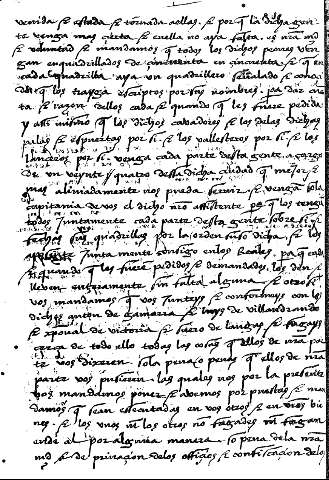 venida se estada se tornada a ellos. se por q la dicha gen
te venga mas cierta se en ella no aya falta. es nra md
se voluntad se mandamos q todos los dichos peones ven
gan enquadrillados de cinquenta en cinquenta se q en
cada quadrilla aya un quadrillero señalado se conoci
do q los trayga escriptos por sus nonbres. para dar cue
ta se razon dellos cada se quando q les fuere pedida
y asi mismo q los dichos cavadores se los de las dichas
palas se espuertas por si. se los vallesteros por si. se los
lanceros por si. venga cada parte desta gente a cargo
de un veynte y quatro desta dicha cibdad q mejor se
mas aliviadamente nos pueda servir. se vengan so la
capitania de vos el dicho nro asistente
todos juntamente cada parte desta gente sobre si
fechas sus quadrillas por la orden suso dicha. se los
juntamente consigo en los Reales. pa q cada
se quando q les fueren pedidos se demandados, los den se
lleven enteramente sin falta alguna. se otrosi
vos mandamos q vos junteys se conformeys con los
dichos anton de gamarra se luys de villandrando
se xpoual de victoria se suero de cangas. se fagays
cerca de todo ello todas las cosas q ellos de nra par
te vos dixeren. so la pena o penas q ellos de nra
parte vos pusieren. las quales nos por la presente
vos mandamos poner. se avemos por puestas se ma
damos q sean esecutadas en vos otros se en vros bie
nes. se los unos ni los otros no fagades ni fagan
ende al por alguna manera. so pena de la nra
md se de privacion de los officios se confiscacion de los